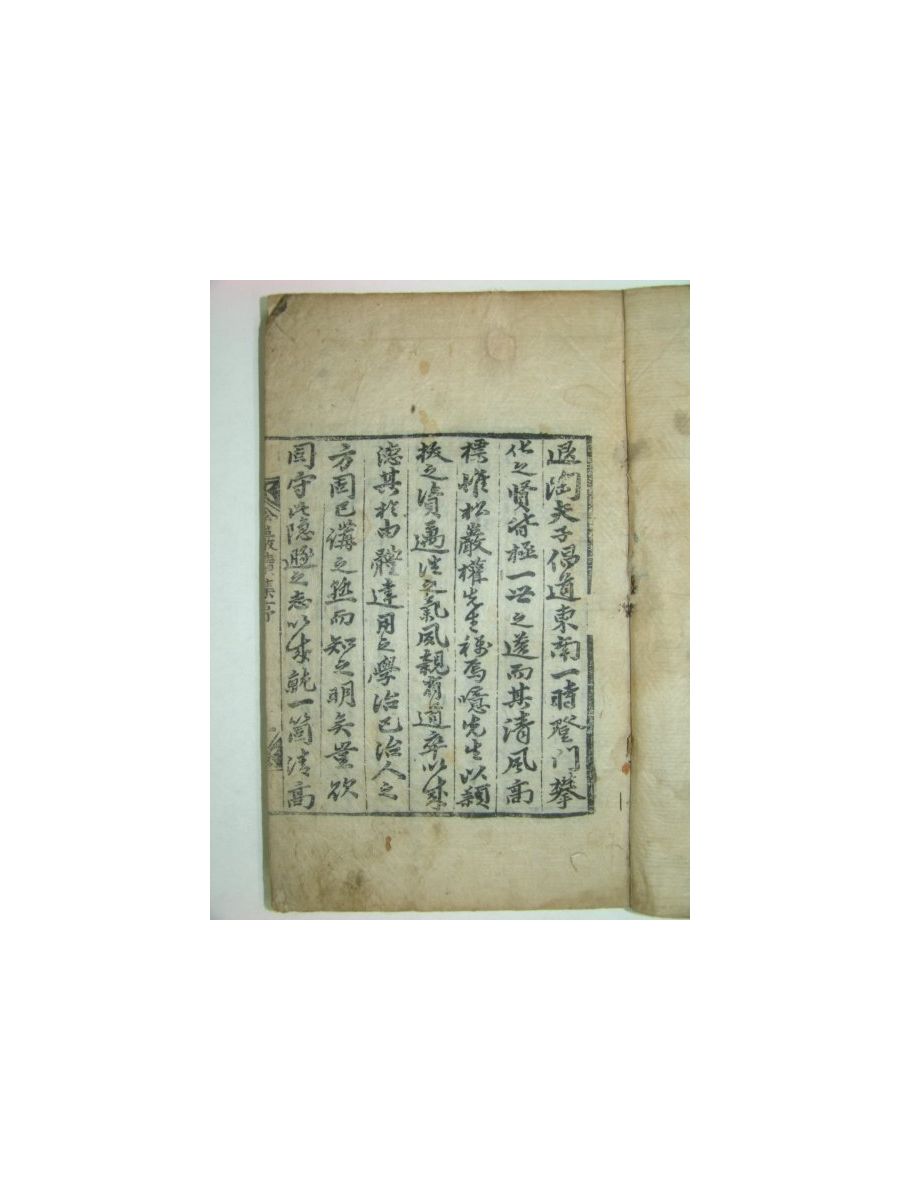 退陶夫子倡道東南一時登門攀
化之賢皆極一世之選而其清風高
標惟松巖權先生稱焉噫先生以穎
拔之資邁往之氣夙親有道卒以成
德其於由體達用之學治己治人之
方固已講之熟而知之明矣豈欲
固守此隱遯之志以成就一箇清高
松巖續集序